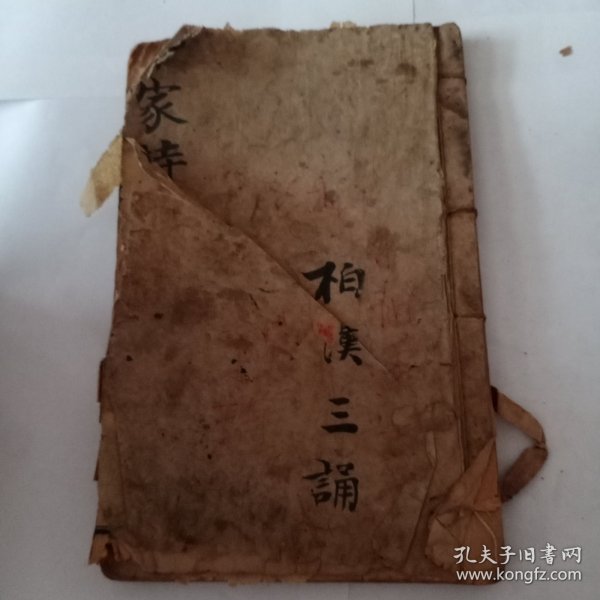 家詩
柏漢三誦
孔夫子旧書网
www.kongfz.com